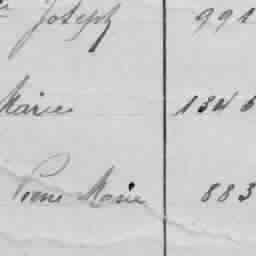 Joseph 991
Marie 134 5
Pierre Marie 883